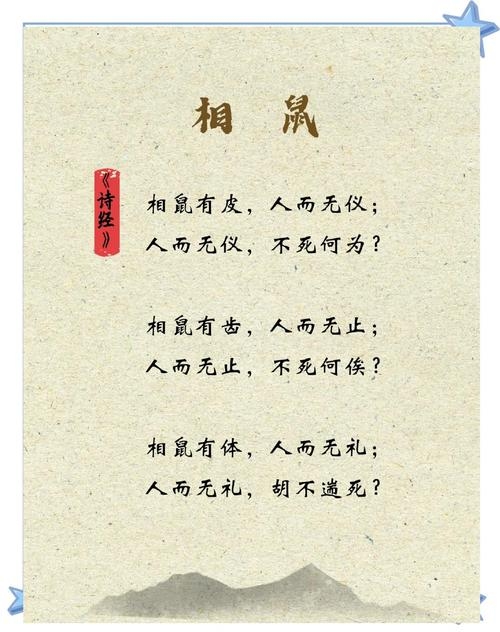 相鼠
《诗经》
相鼠有皮，人而无仪；
人而无仪，不死何为？
相鼠有齿，人而无止；
人而无止，不死何俟？
相鼠有体，人而无礼；
人而无礼，胡不遄死？